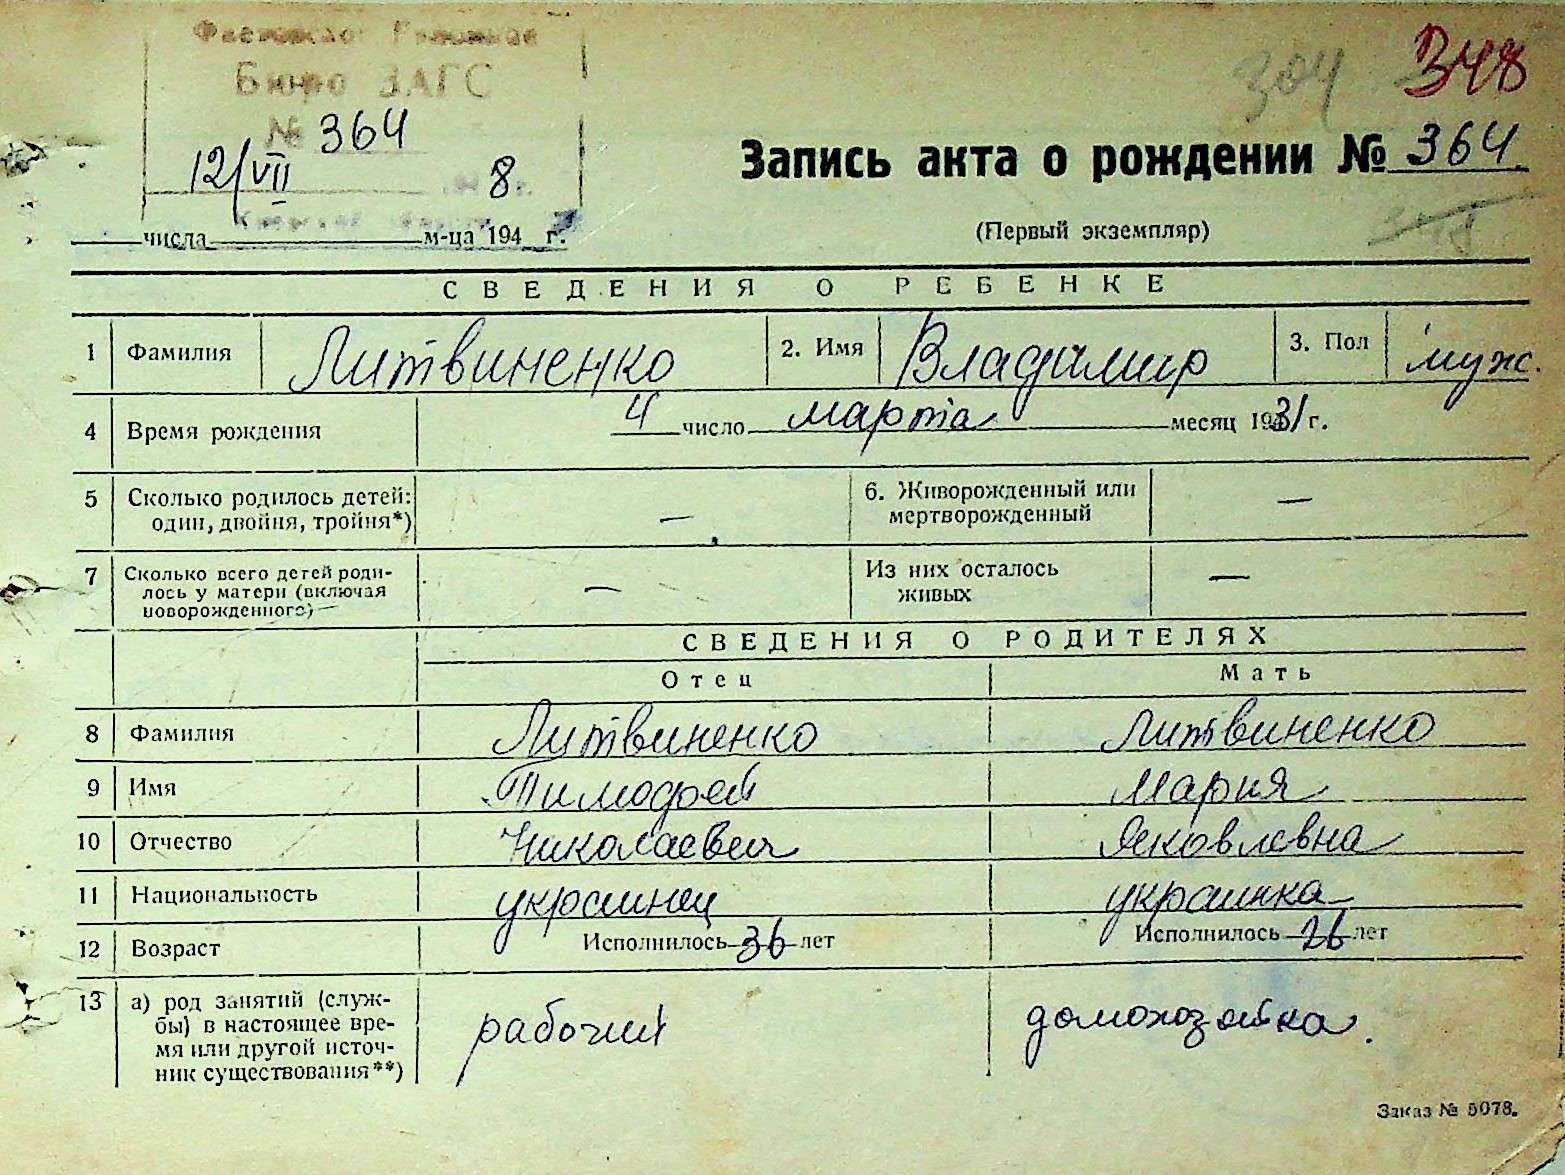 Бюро ЗАГС
№ 364
12/VII 8
304 348
Запись акта о рождении № 364
(Первый экземпляр)
348
числа м-ца 194 г.
СВЕДЕНИЯ О РЕБЕНКЕ
1 Фамилия Литвиненко 2. Имя Владимир 3. Пол муж.
4 Время рождения 4 число марта месяц 1931 г.
5 Сколько родилось детей: один, двойня, тройня*) — 6. Живорожденный или мертворожденный —
7 Сколько всего детей родилось у матери (включая новорожденного) — Из них осталось живых —
СВЕДЕНИЯ О РОДИТЕЛЯХ
Отец Мать
8 Фамилия Литвиненко Литвиненко
9 Имя Тимофей Мария
10 Отчество Николаевич Яковлевна
11 Национальность украинец украинка
12 Возраст Исполнилось 36 лет Исполнилось 26 лет
13 а) род занятий (службы) в настоящее время или другой источник существования**) рабочий домохозяйка.
Заказ № 5078.